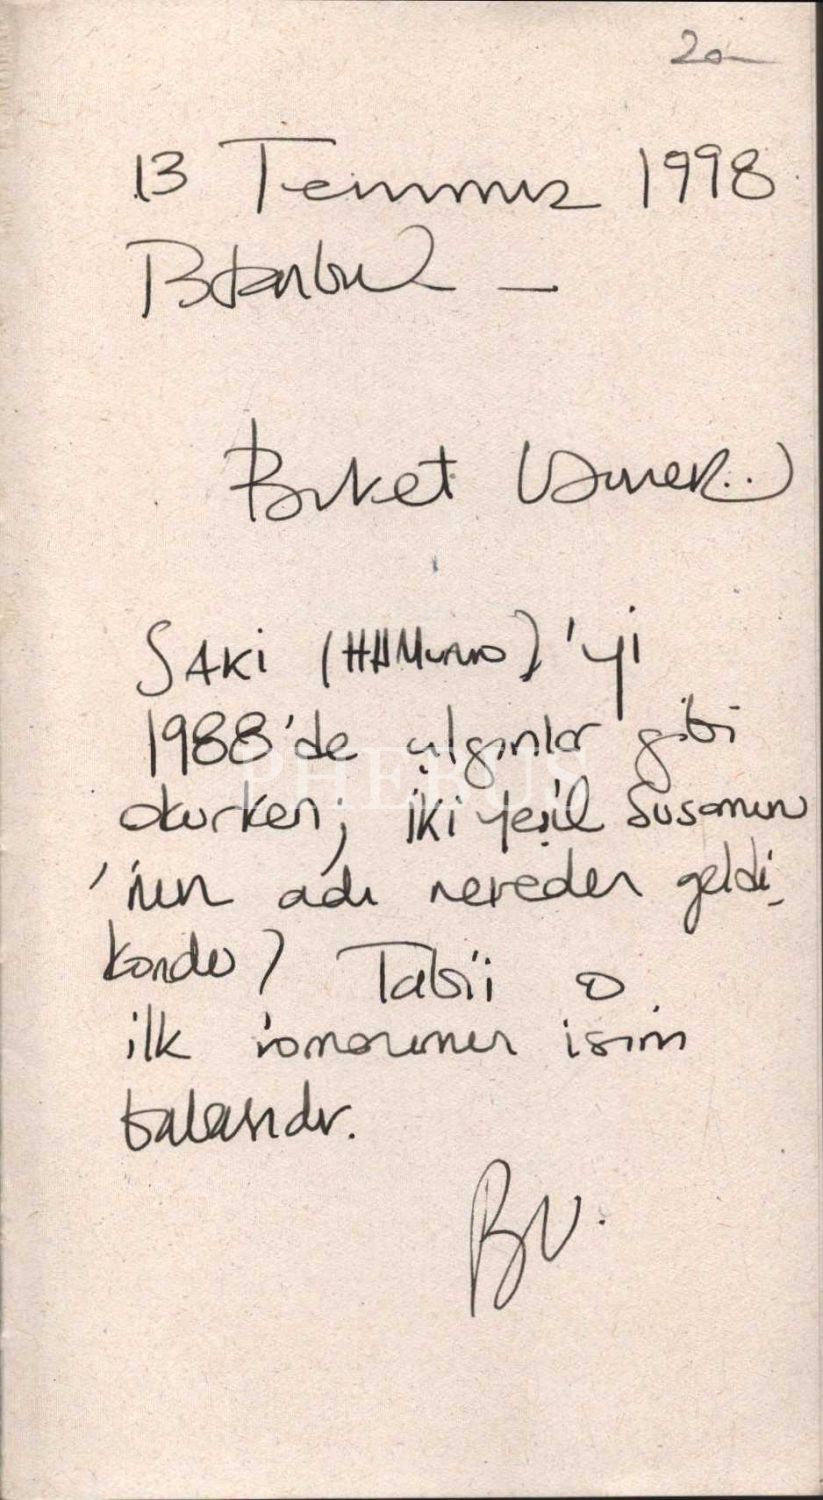 20—
13 Temmuz 1998
İstanbul —
Buket Uzuner..
SAKİ (HHMunro)'yi
1988'de çılgınlar gibi
PHEBUS
okurken; İki Yeşil Susamuru
'nun adı nereden geldi,
kondu? Tabii o
ilk romanımın isim
babasıdır.
BU.